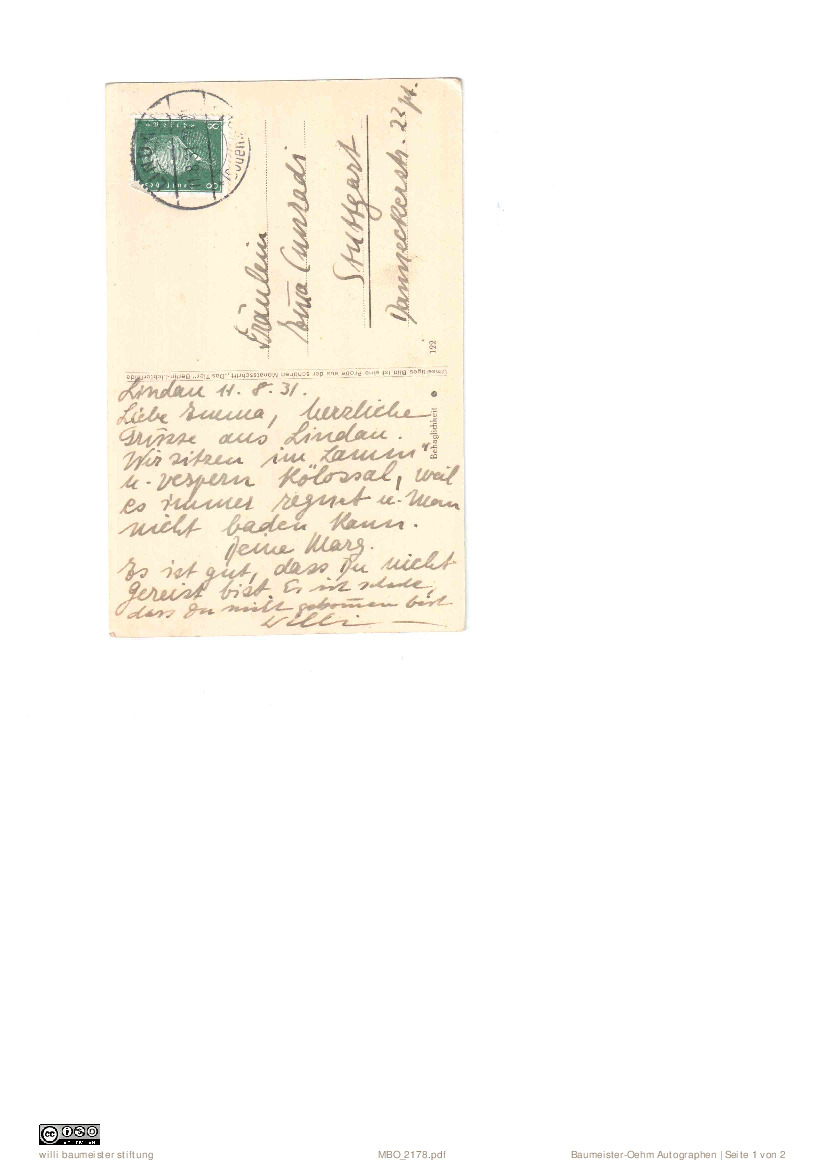 Fräulein
Em̄a Cunradi
Stuttgart
Danneckerstr. 23 pt.
122
Umseitiges Bild ist eine Probe aus der schönen Monatsschrift „Das Tier" Berlin-Lichterfelde
Behaglichkeit
Lindau 11. 8. 31.
Liebe Emma, herzliche
Grüsse aus Lindau.
Wir sitzen im Lamm"
u. vespern kölossal, weil
es immer regnet u. Man
nicht baden kann.
Deine Marg.
Es ist gut, dass Du nicht
gereist bist. Es ist schade,
dass Du nicht gekom̄en bist
Willi
willi baumeister stiftung
MBO_2178.pdf
Baumeister-Oehm Autographen | Seite 1 von 2